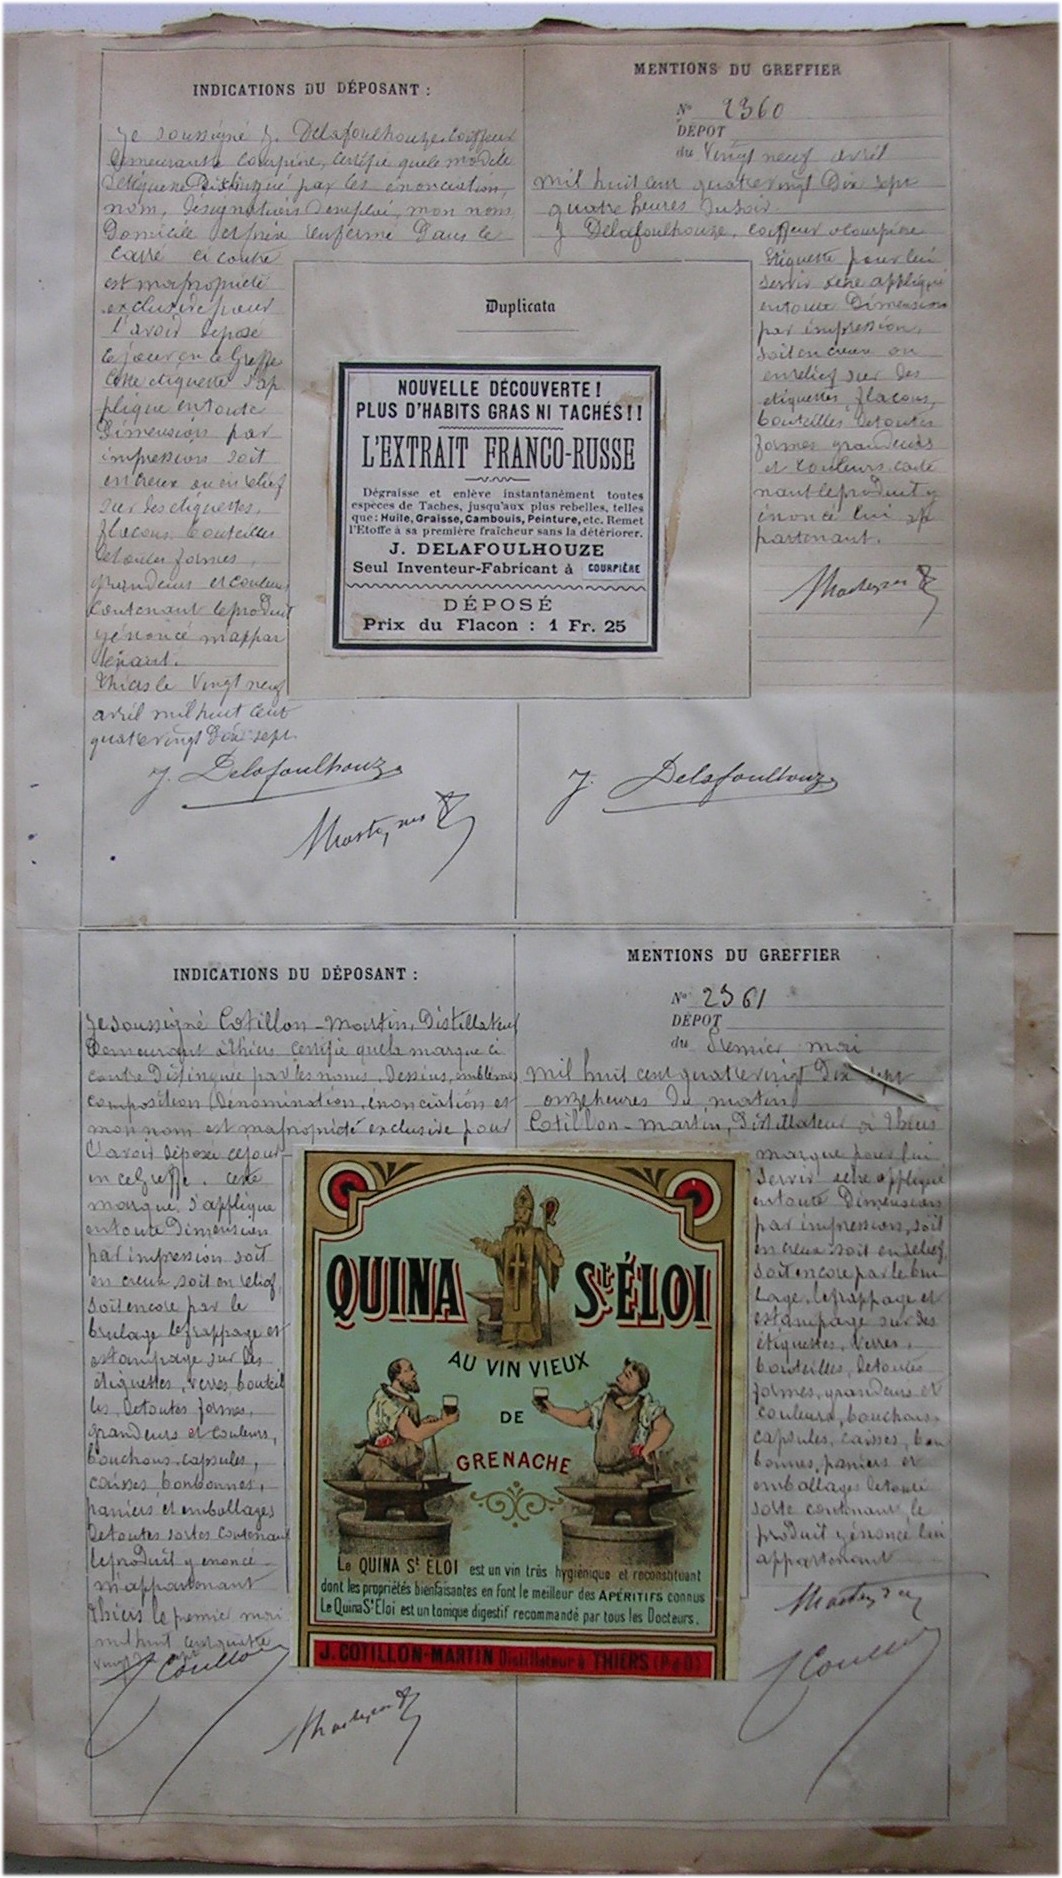 INDICATIONS DU DÉPOSANT :
Je soussigné J. Delafoulhouze, coiffeur
demeurant à Courpière, certifie que le modèle
d'étiquette Distingué par les énonciation,
nom, désignations d'emploi, mon nom
Domicile et prix renfermé Dans le
carré ci contre
est ma propriété
exclusive pour
l'avoir déposé
ce jour en ce Greffe
Cette étiquette s'ap
plique en toute
Dimensions par
impressions soit
en creux ou en relief
sur des étiquettes,
flacons, bouteilles
de toutes formes,
grandeurs et couleurs,
Contenant le produit
y énoncé m'appar
tenant.
Thiers le Vingt neuf
avril mil huit cent
quatre vingt Dix sept.
J. Delafoulhouze
MENTIONS DU GREFFIER
N° 2360
DÉPÔT
du Vingt neuf avril
mil huit cent quatre vingt Dix sept
quatre heures du soir
J Delafoulhouze, coiffeur à Courpière
Etiquette pour lui
servir à être appliqué
en toute Dimensions
par impression,
soit en creux ou
en relief sur des
étiquettes, flacons,
bouteilles de toutes
formes grandeurs
et couleurs conte
nant le produit y
énoncé lui ap
partenant.
J. Delafoulhouze
Duplicata
NOUVELLE DÉCOUVERTE !
PLUS D'HABITS GRAS NI TACHÉS !!
L'EXTRAIT FRANCO-RUSSE
Dégraisse et enlève instantanément toutes
espèces de Taches, jusqu'aux plus rebelles, telles
que : Huile, Graisse, Cambouis, Peinture, etc. Remet
l'Etoffe à sa première fraîcheur sans la détériorer.
J. DELAFOULHOUZE
Seul Inventeur-Fabricant à COURPIÈRE
DÉPOSÉ
Prix du Flacon : 1 Fr. 25
INDICATIONS DU DÉPOSANT :
Je soussigné Cotillon-Martin, Distillateur
Demeurant à Thiers certifie que la marque ci
contre Distinguée par les noms, Dessins, emblèmes
composition, Dénomination, énonciation et
mon nom est ma propriété exclusive pour
l'avoir déposée ce jour
en ce Greffe. Cette
marque s'applique
en toute Dimension
par impression soit
en creux, soit en relief,
soit encore par le
brulage le frappage et
estampage sur des
étiquettes, verres bouteil
les, de toutes formes,
grandeurs et couleurs,
bouchons, capsules,
caisses, bonbonnes,
paniers et emballages
de toutes sortes contenant
le produit y énoncé
m'appartenant
Thiers le premier mai
mil huit cent quatre
vingt
MENTIONS DU GREFFIER
N° 2361
DÉPÔT
du Premier mai
mil huit cent quatre vingt Dix sept
onze heures du matin
Cotillon-Martin, Distillateur à Thiers
marque pour lui
servir à être appliqué
en toute Dimensions
par impression, soit
en creux soit en relief
soit encore par le bru
lage, le frappage et
estampage sur des
étiquettes, verres,
bouteilles, de toutes
formes, grandeurs et
couleurs, bouchons,
capsules, caisses, bon
bonnes, paniers et
emballages de toute
sorte contenant le
produit y énoncé lui
appartenant
QUINA St ÉLOI
AU VIN VIEUX
DE
GRENACHE
Le QUINA St ELOI est un vin très hygiénique et reconstituant
dont les propriétés bienfaisantes en font le meilleur des APÉRITIFS connus
Le Quina St Eloi est un tonique digestif recommandé par tous les Docteurs.
J. COTILLON-MARTIN Distillateur à THIERS (P-de-D).